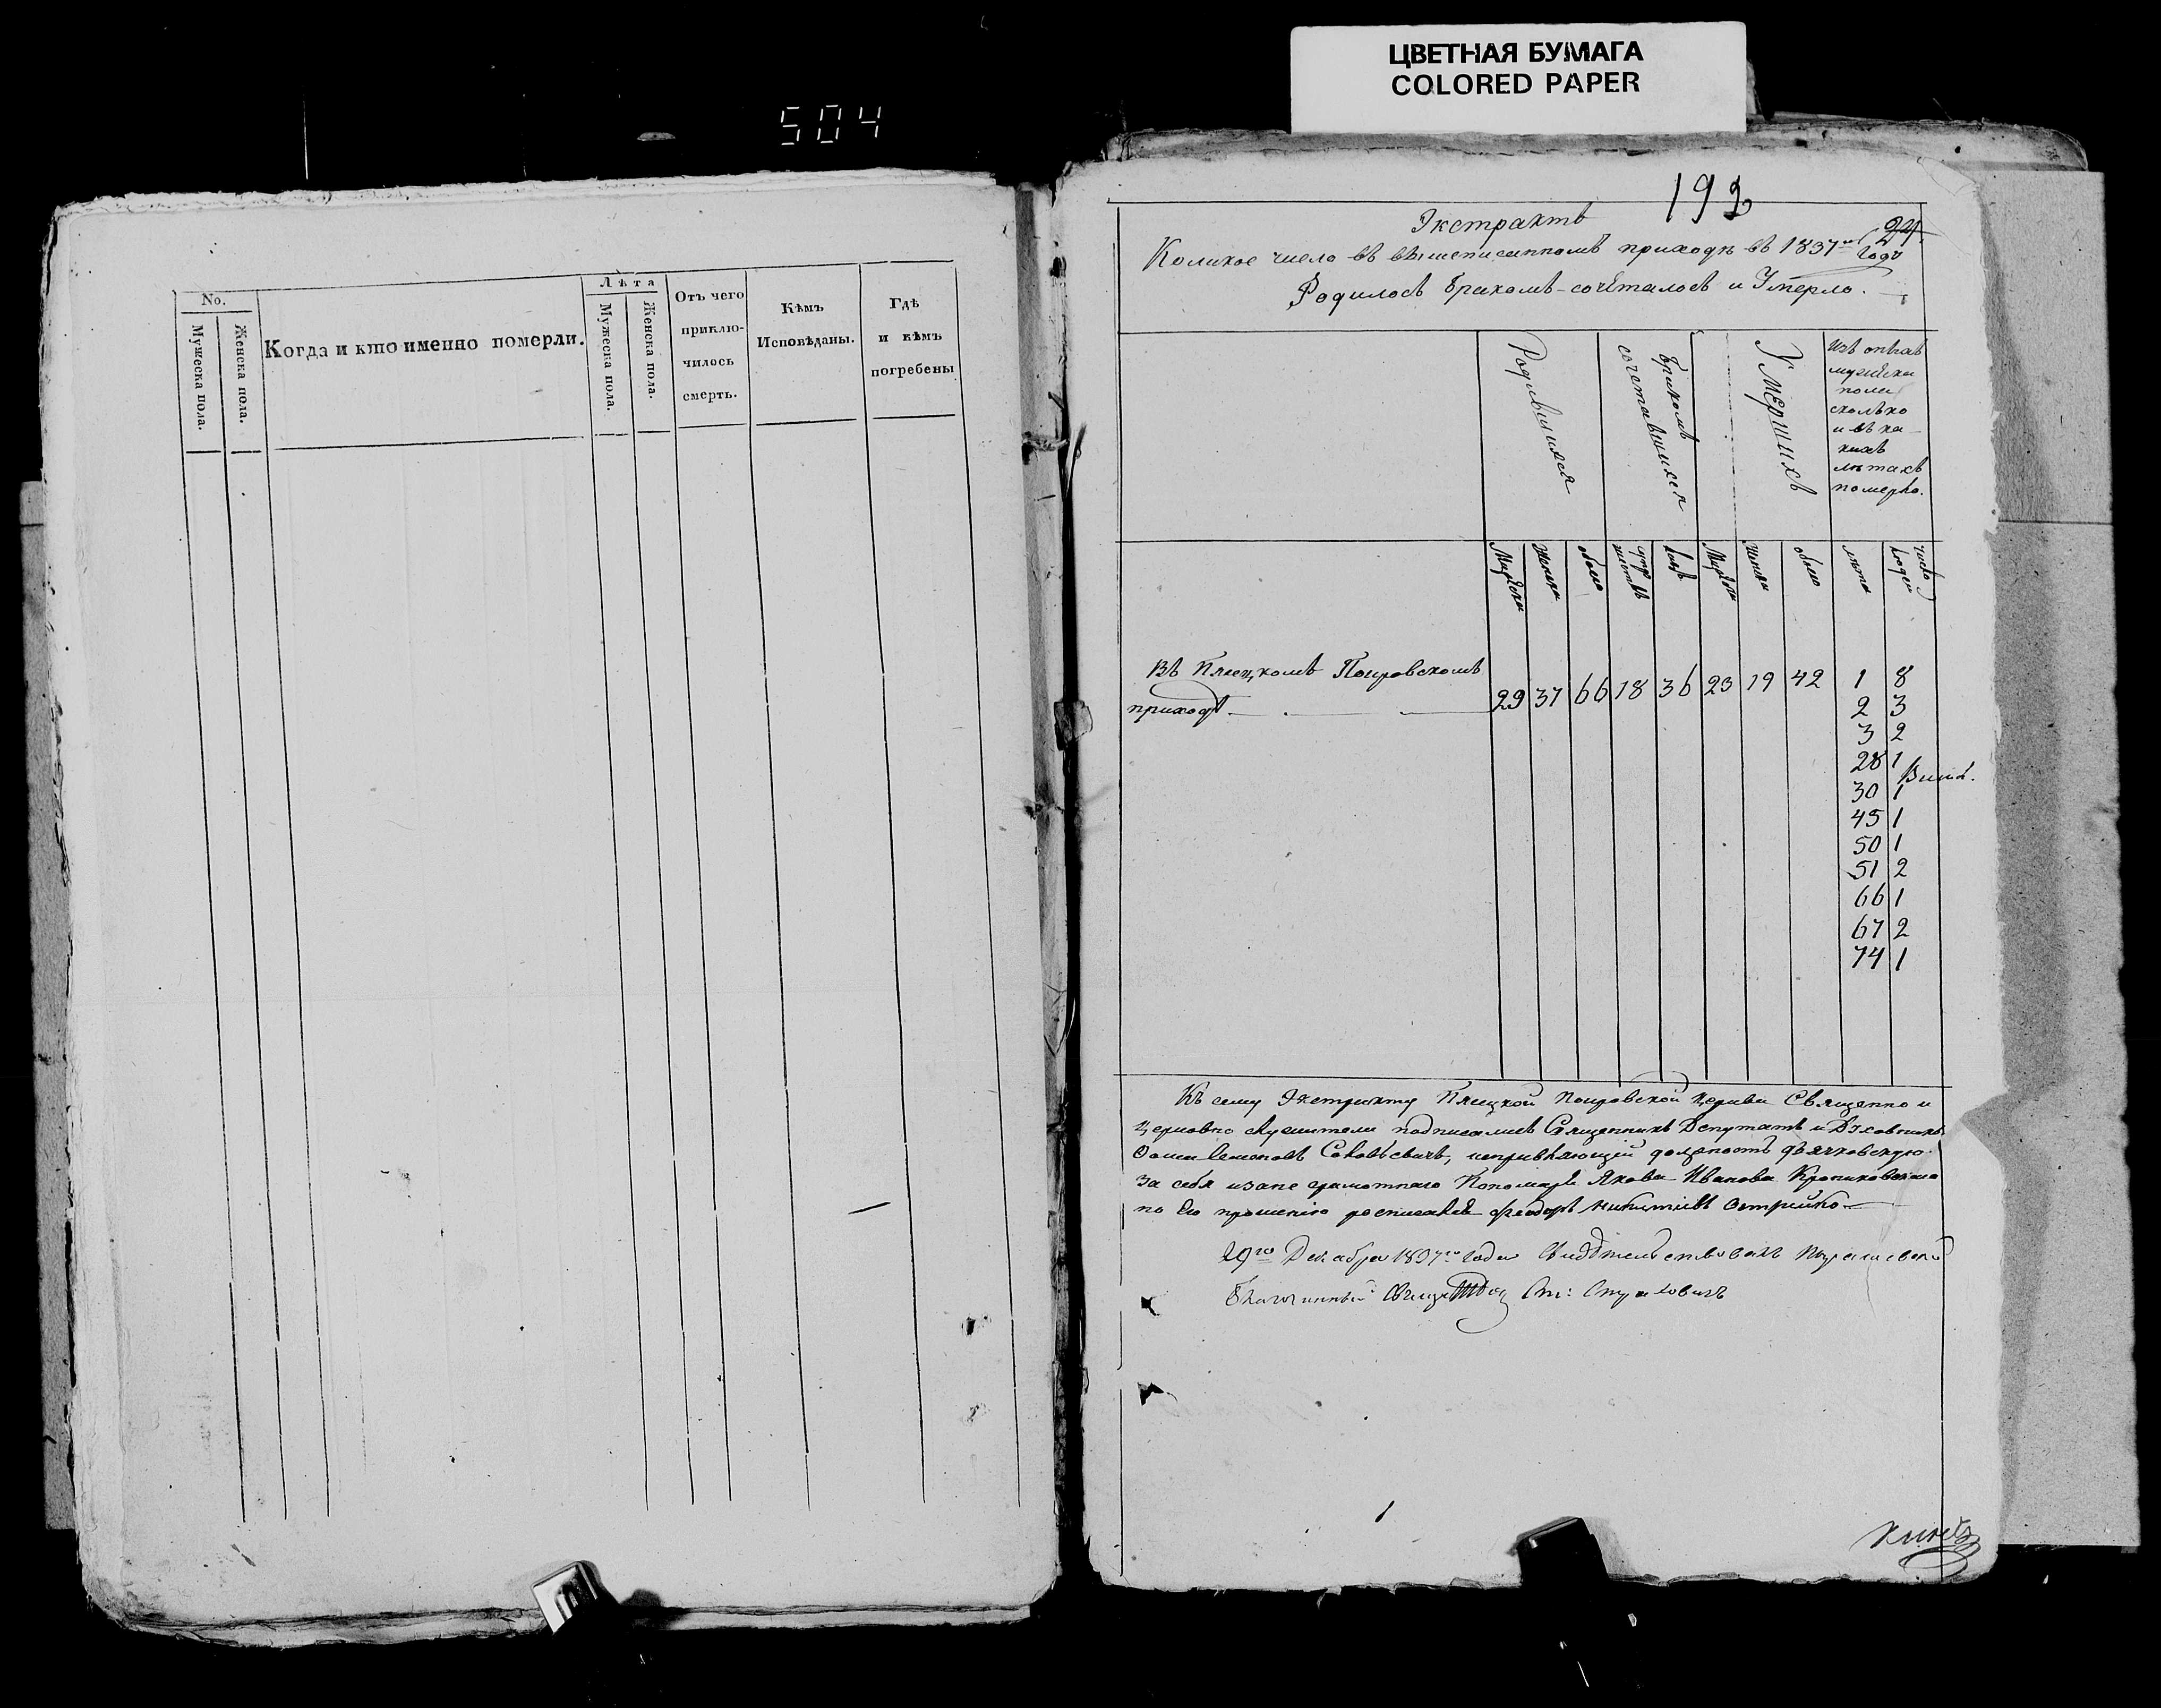 ЦВЕТНАЯ БУМАГА
COLORED PAPER
504
No.
Мужеска пола.
Женска пола.
Когда и кто именно померли.
Лѣта
Мужеска пола.
Женска пола.
Отъ чего
приклю-
чилось
смерть.
Кѣмъ
Исповѣданы.
Гдѣ
и кѣмъ
погребены
192
24.
Экстрактъ
Коликое число въ вышеписанномъ приходѣ въ 1837мъ Году
Родилось бракомъ-сочеталось и Умерло.
Родившихся
бракомъ
сочетавшихся
Умершихъ
Изъ онихъ
мужеска
пола
сколько
и въ ка-
кихъ
лѣтахъ
померло.
Мужеска
женска
обоего
Мужеска
женска
обоего
лѣта
число
людей
Въ Покровскомъ
приходѣ
29 37 66 18 36 23 19 42 1 8
2 3
3 2
28 1
30 1
45 1
50 1
51 2
66 1
67 2
74 1
Къ сему Экстракту Покровской Церкви Священно и
Церковно служители подписались Священникъ Депутатъ и Духовникъ
Фома должность дьячковскую
за себя и за не грамотнаго Пономаря Якова Иванова
по Его прошенію росписался Федоръ Никитинъ
29го Декабря 1837го года Свидѣтельствовалъ
Благочинный